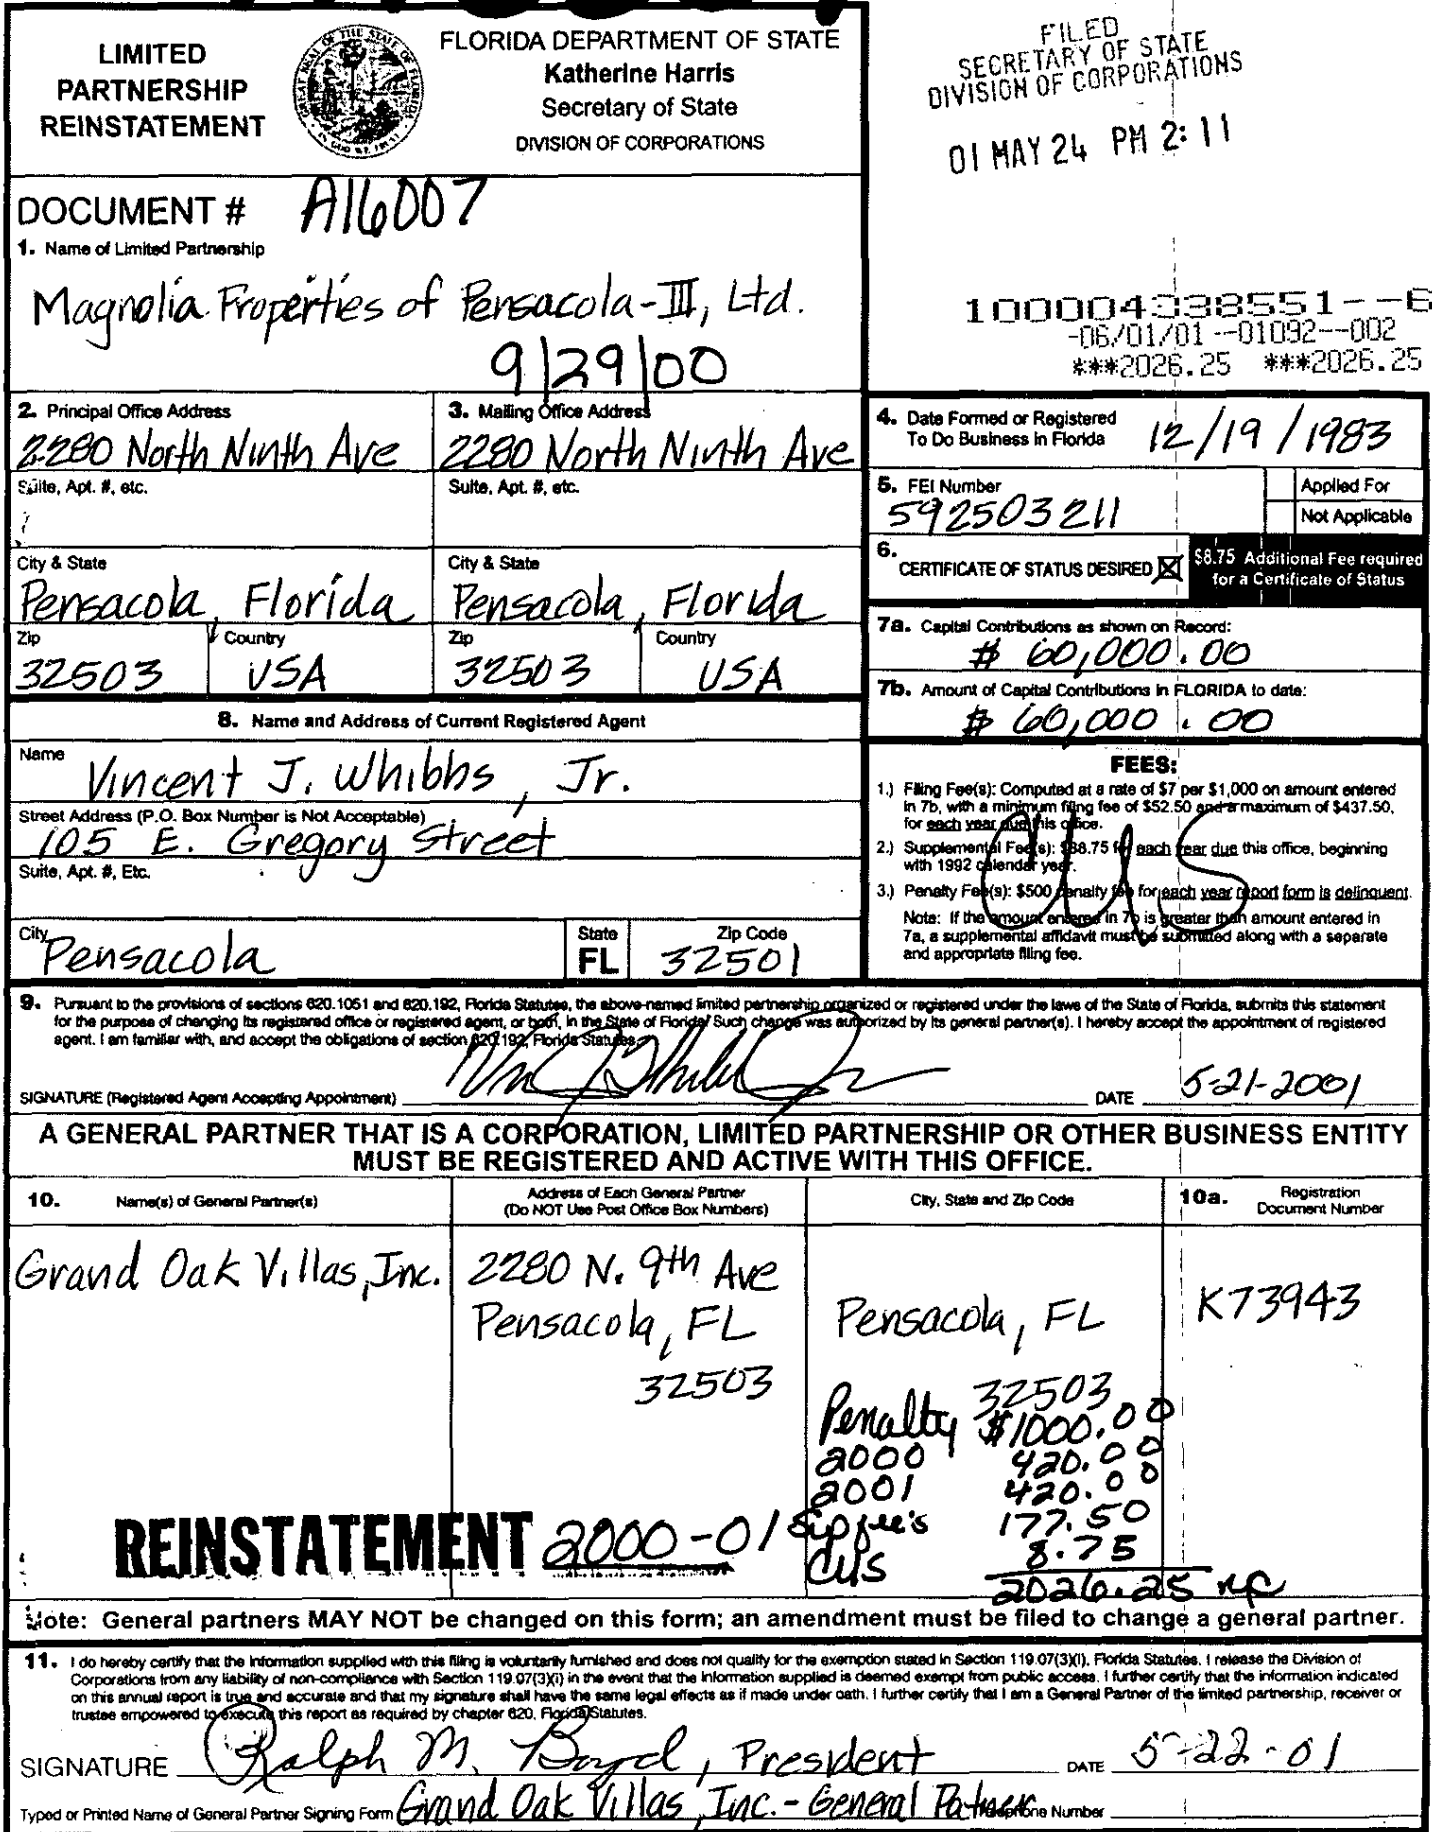 LIMITED
PARTNERSHIP
REINSTATEMENT
FLORIDA DEPARTMENT OF STATE
Katherine Harris
Secretary of State
DIVISION OF CORPORATIONS
FILED
SECRETARY OF STATE
DIVISION OF CORPORATIONS
01 MAY 24 PM 2:11
DOCUMENT # A16007
1. Name of Limited Partnership
Magnolia Properties of Pensacola-III, Ltd.
9/29/00
100004338551--6
-06/01/01--01092--002
***2026.25 ***2026.25
2. Principal Office Address
2280 North Ninth Ave
Suite, Apt. #, etc.
City & State
Pensacola, Florida
Zip Country
32503 USA
3. Mailing Office Address
2280 North Ninth Ave
Suite, Apt. #, etc.
City & State
Pensacola, Florida
Zip Country
32503 USA
4. Date Formed or Registered
To Do Business in Florida 12/19/1983
5. FEI Number
592503211
Applied For
Not Applicable
6. CERTIFICATE OF STATUS DESIRED ☒
$8.75 Additional Fee required
for a Certificate of Status
7a. Capital Contributions as shown on Record:
$ 60,000.00
7b. Amount of Capital Contributions in FLORIDA to date:
$ 60,000.00
8. Name and Address of Current Registered Agent
Name
Vincent J. Whibbs, Jr.
Street Address (P.O. Box Number is Not Acceptable)
105 E. Gregory Street
Suite, Apt. #, Etc.
City State Zip Code
Pensacola FL 32501
FEES:
1.) Filing Fee(s): Computed at a rate of $7 per $1,000 on amount entered
in 7b, with a minimum filing fee of $52.50 and a maximum of $437.50,
for each year due this office.
2.) Supplemental Fee(s): $88.75 for each year due this office, beginning
with 1992 calendar year.
3.) Penalty Fee(s): $500 penalty fee for each year report form is delinquent.
Note: If the amount entered in 7b is greater than amount entered in
7a, a supplemental affidavit must be submitted along with a separate
and appropriate filing fee.
CUS
9. Pursuant to the provisions of sections 620.1051 and 620.192, Florida Statutes, the above-named limited partnership organized or registered under the laws of the State of Florida, submits this statement
for the purpose of changing its registered office or registered agent, or both, in the State of Florida. Such change was authorized by its general partner(s). I hereby accept the appointment of registered
agent. I am familiar with, and accept the obligations of section 620.192, Florida Statutes.
SIGNATURE (Registered Agent Accepting Appointment) DATE 5-21-2001
A GENERAL PARTNER THAT IS A CORPORATION, LIMITED PARTNERSHIP OR OTHER BUSINESS ENTITY
MUST BE REGISTERED AND ACTIVE WITH THIS OFFICE.
10. Name(s) of General Partner(s)
Address of Each General Partner
(Do NOT Use Post Office Box Numbers)
City, State and Zip Code
10a. Registration
Document Number
Grand Oak Villas, Inc.
2280 N. 9th Ave
Pensacola, FL
32503
Pensacola, FL
32503
K73943
Penalty $1000.00
2000 420.00
2001 420.00
Sup fee's 177.50
CUS 8.75
2026.25
REINSTATEMENT 2000-01
Note: General partners MAY NOT be changed on this form; an amendment must be filed to change a general partner.
11. I do hereby certify that the information supplied with this filing is voluntarily furnished and does not qualify for the exemption stated in Section 119.07(3)(i), Florida Statutes. I release the Division of
Corporations from any liability of non-compliance with Section 119.07(3)(i) in the event that the information supplied is deemed exempt from public access. I further certify that the information indicated
on this annual report is true and accurate and that my signature shall have the same legal effects as if made under oath. I further certify that I am a General Partner of the limited partnership, receiver or
trustee empowered to execute this report as required by chapter 620, Florida Statutes.
SIGNATURE Ralph M. Boyd, President DATE 5-22-01
Typed or Printed Name of General Partner Signing Form Grand Oak Villas, Inc. - General Partner Telephone Number